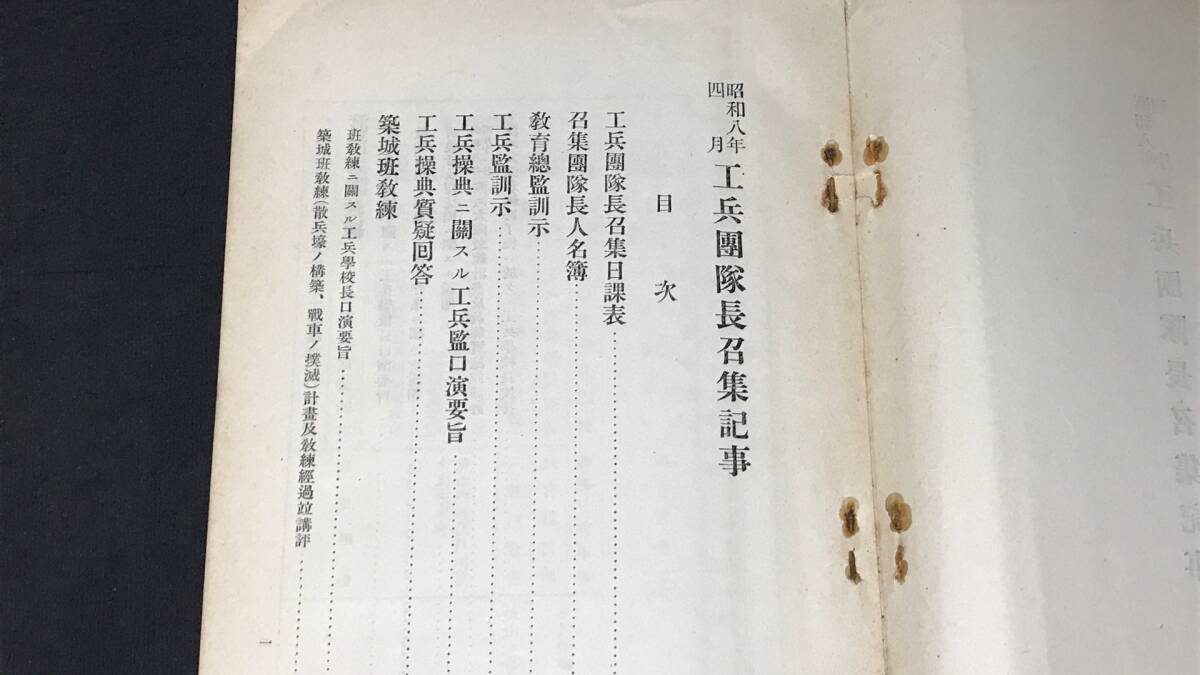 昭和八年四月 工兵團隊長召集記事
目次
工兵團隊長召集日課表
召集團隊長人名簿
敎育總監訓示
工兵監訓示
工兵操典ニ關スル工兵監口演要旨
工兵操典質疑回答
築城班敎練
班敎練ニ關スル工兵學校長口演要旨
築城班敎練(散兵壕ノ構築、戰車ノ撲滅)計畫及敎練經過竝講評
一